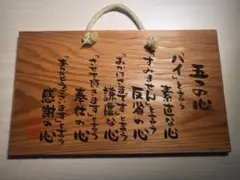 五つの心
「ハイ」という
素直な心
「すみません」という
反省の心
「おかげさまで」という
謙虚な心
「させて頂きます」という
奉仕の心
「ありがとう」という
感謝の心